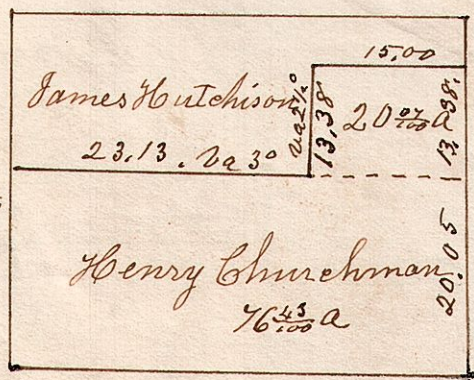 15,00
James Hutchison
Va 2½°
13,38
20 07/100 a
13,38.
23.13. Va 3°
20.05
Henry Churchman
76 43/100 a